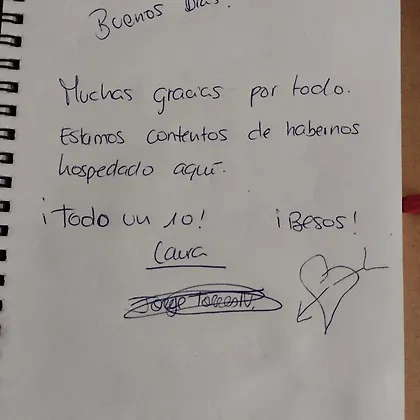 Buenos Días!
Muchas gracias por todo.
Estamos contentos de habernos
hospedado aquí.
¡Todo un 10! ¡Besos!
Laura